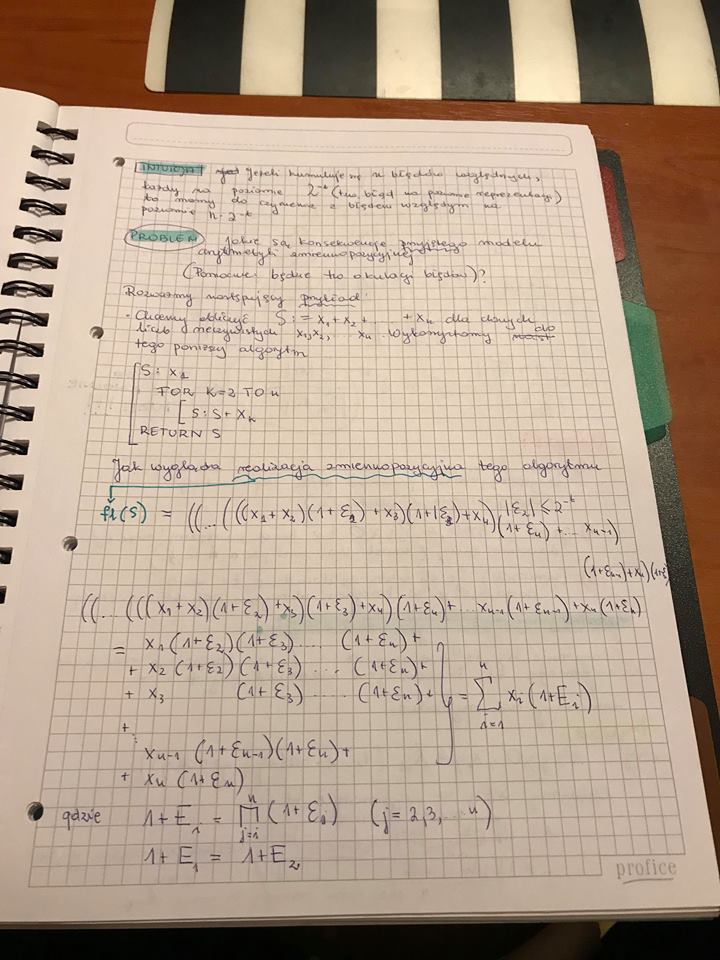 INTUICJA Jeżeli kumuluje się n błędów względnych,
każdy na poziomie 2^-t (tzw. błąd na poziomie reprezentacji)
to mamy do czynienia z błędem względnym na
poziomie n·2^-t
PROBLEM Jakie są konsekwencje przyjętego modelu
arytmetyki zmiennopozycyjnej
(Pomocne będzie tw o kumulacji błędów)?
Rozważmy następujący przykład:
- Chcemy obliczyć S := x₁ + x₂ + ... + xₙ dla danych
liczb rzeczywistych x₁, x₂, ... xₙ. Wykorzystamy do
tego poniższy algorytm
S: x₁
FOR K=2 TO n
[S: S + xₖ
RETURN S
Jak wygląda realizacja zmiennopozycyjna tego algorytmu
fl(S) = ((...(((x₁+x₂)(1+ε₂)+x₃)(1+|ε₃)+x₄) |ε₂|⩽2^-t
(1+ε₄) + ... xₙ₋₁)
(1+εₙ₋₁)+xₙ)(1+ε
((...(((x₁+x₂)(1+ε₂)+x₃)(1+ε₃)+x₄)(1+ε₄)+...xₙ₋₁(1+εₙ₋₁)+xₙ(1+εₙ)
= x₁(1+ε₂)(1+ε₃)....(1+εₙ)+
+ x₂(1+ε₂)(1+ε₃)....(1+εₙ)+
+ x₃ (1+ε₃).....(1+εₙ)+ = ∑ⁿᵢ₌₁ xᵢ(1+Eᵢ)
+
⋮
xₙ₋₁(1+εₙ₋₁)(1+εₙ)+
+ xₙ(1+εₙ)
gdzie 1+E = ∏ⁿⱼ₌ᵢ(1+εⱼ) (j=2,3,...n)
1+E₁ = 1+E₂
profice